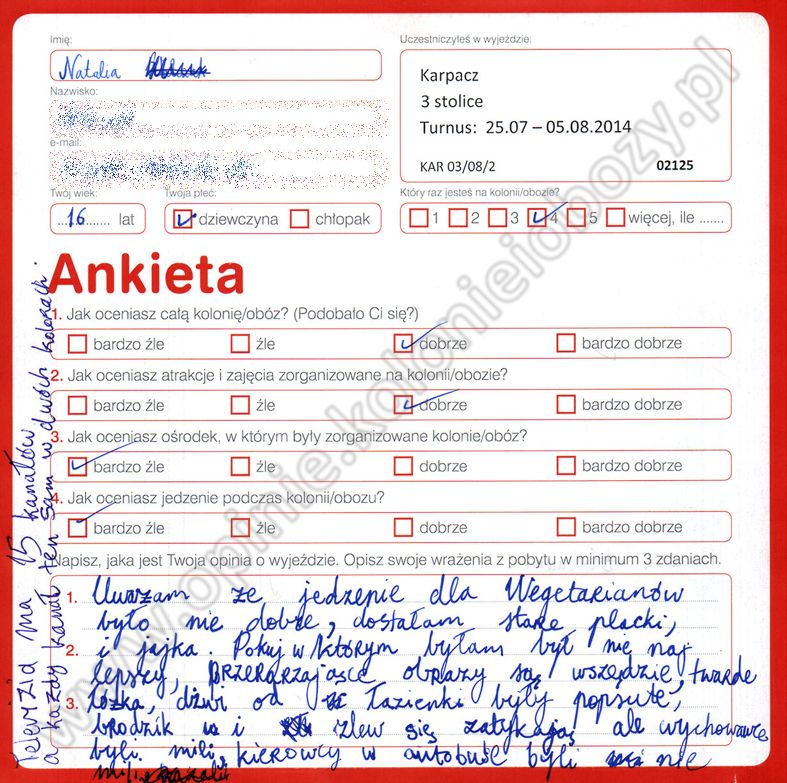 Imię:
Natalia
Nazwisko:
e-mail:
Twój wiek:
16 lat
Twoja płeć:
dziewczyna chłopak
Uczestniczyłeś w wyjeździe:
Karpacz
3 stolice
Turnus: 25.07 – 05.08.2014
KAR 03/08/2 02125
Który raz jesteś na kolonii/obozie?
1 2 3 4 5 więcej, ile .......
Ankieta
1. Jak oceniasz całą kolonię/obóz? (Podobało Ci się?)
bardzo źle źle dobrze bardzo dobrze
2. Jak oceniasz atrakcje i zajęcia zorganizowane na kolonii/obozie?
bardzo źle źle dobrze bardzo dobrze
3. Jak oceniasz ośrodek, w którym były zorganizowane kolonie/obóz?
bardzo źle źle dobrze bardzo dobrze
4. Jak oceniasz jedzenie podczas kolonii/obozu?
bardzo źle źle dobrze bardzo dobrze
Napisz, jaka jest Twoja opinia o wyjeździe. Opisz swoje wrażenia z pobytu w minimum 3 zdaniach.
1. Uważam że jedzenie dla Wegetarianów
było nie dobre, dostałam stare placki,
2. i jajka. Pokuj w którym byłam był nie naj
lepszy, przerarzające obrazy są wszędzie, twarde
3. łóżka, dżwi od łazienki były popsute,
brodzik i zlew się zatykają ale wychowawcy
byli mili, kierowcy w autobuśe byli nie
mili
Telewizja ma 15 kanałów
a każdy kanał ten sam w dwóch kolorach.
www.opinie.kolonieiobozy.pl